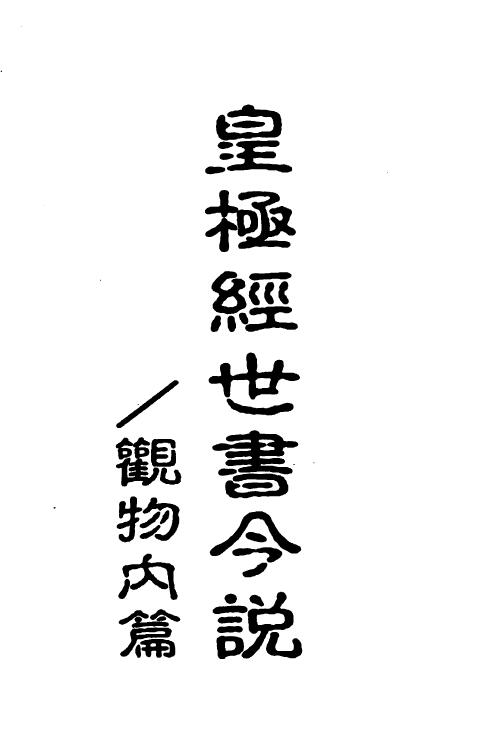 皇極經世書今説
/觀物內篇